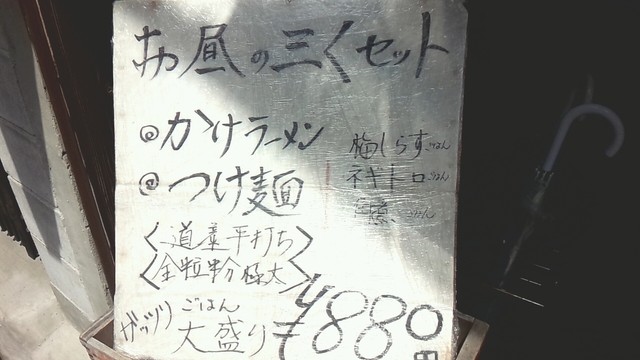 お昼の三くセット
◎かけラーメン
◎つけ麺
梅しらすごはん
ネギトロごはん
ごはん
〈道産平打ち〉
〈全粒粉極太〉
ガッツリごはん大盛り
¥880円